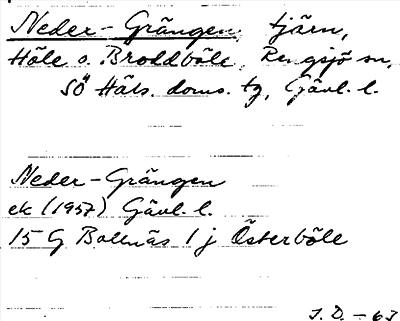 Neder-Grängen, tjärn,
Höle o. Broddböle, Rengsjö sn,
SÖ Häls. doms. tg, Gävl. l.
Neder-Grängen
ek (1957) Gävl. l.
15 G Bollnäs 1 j Österböle
J. D. -63